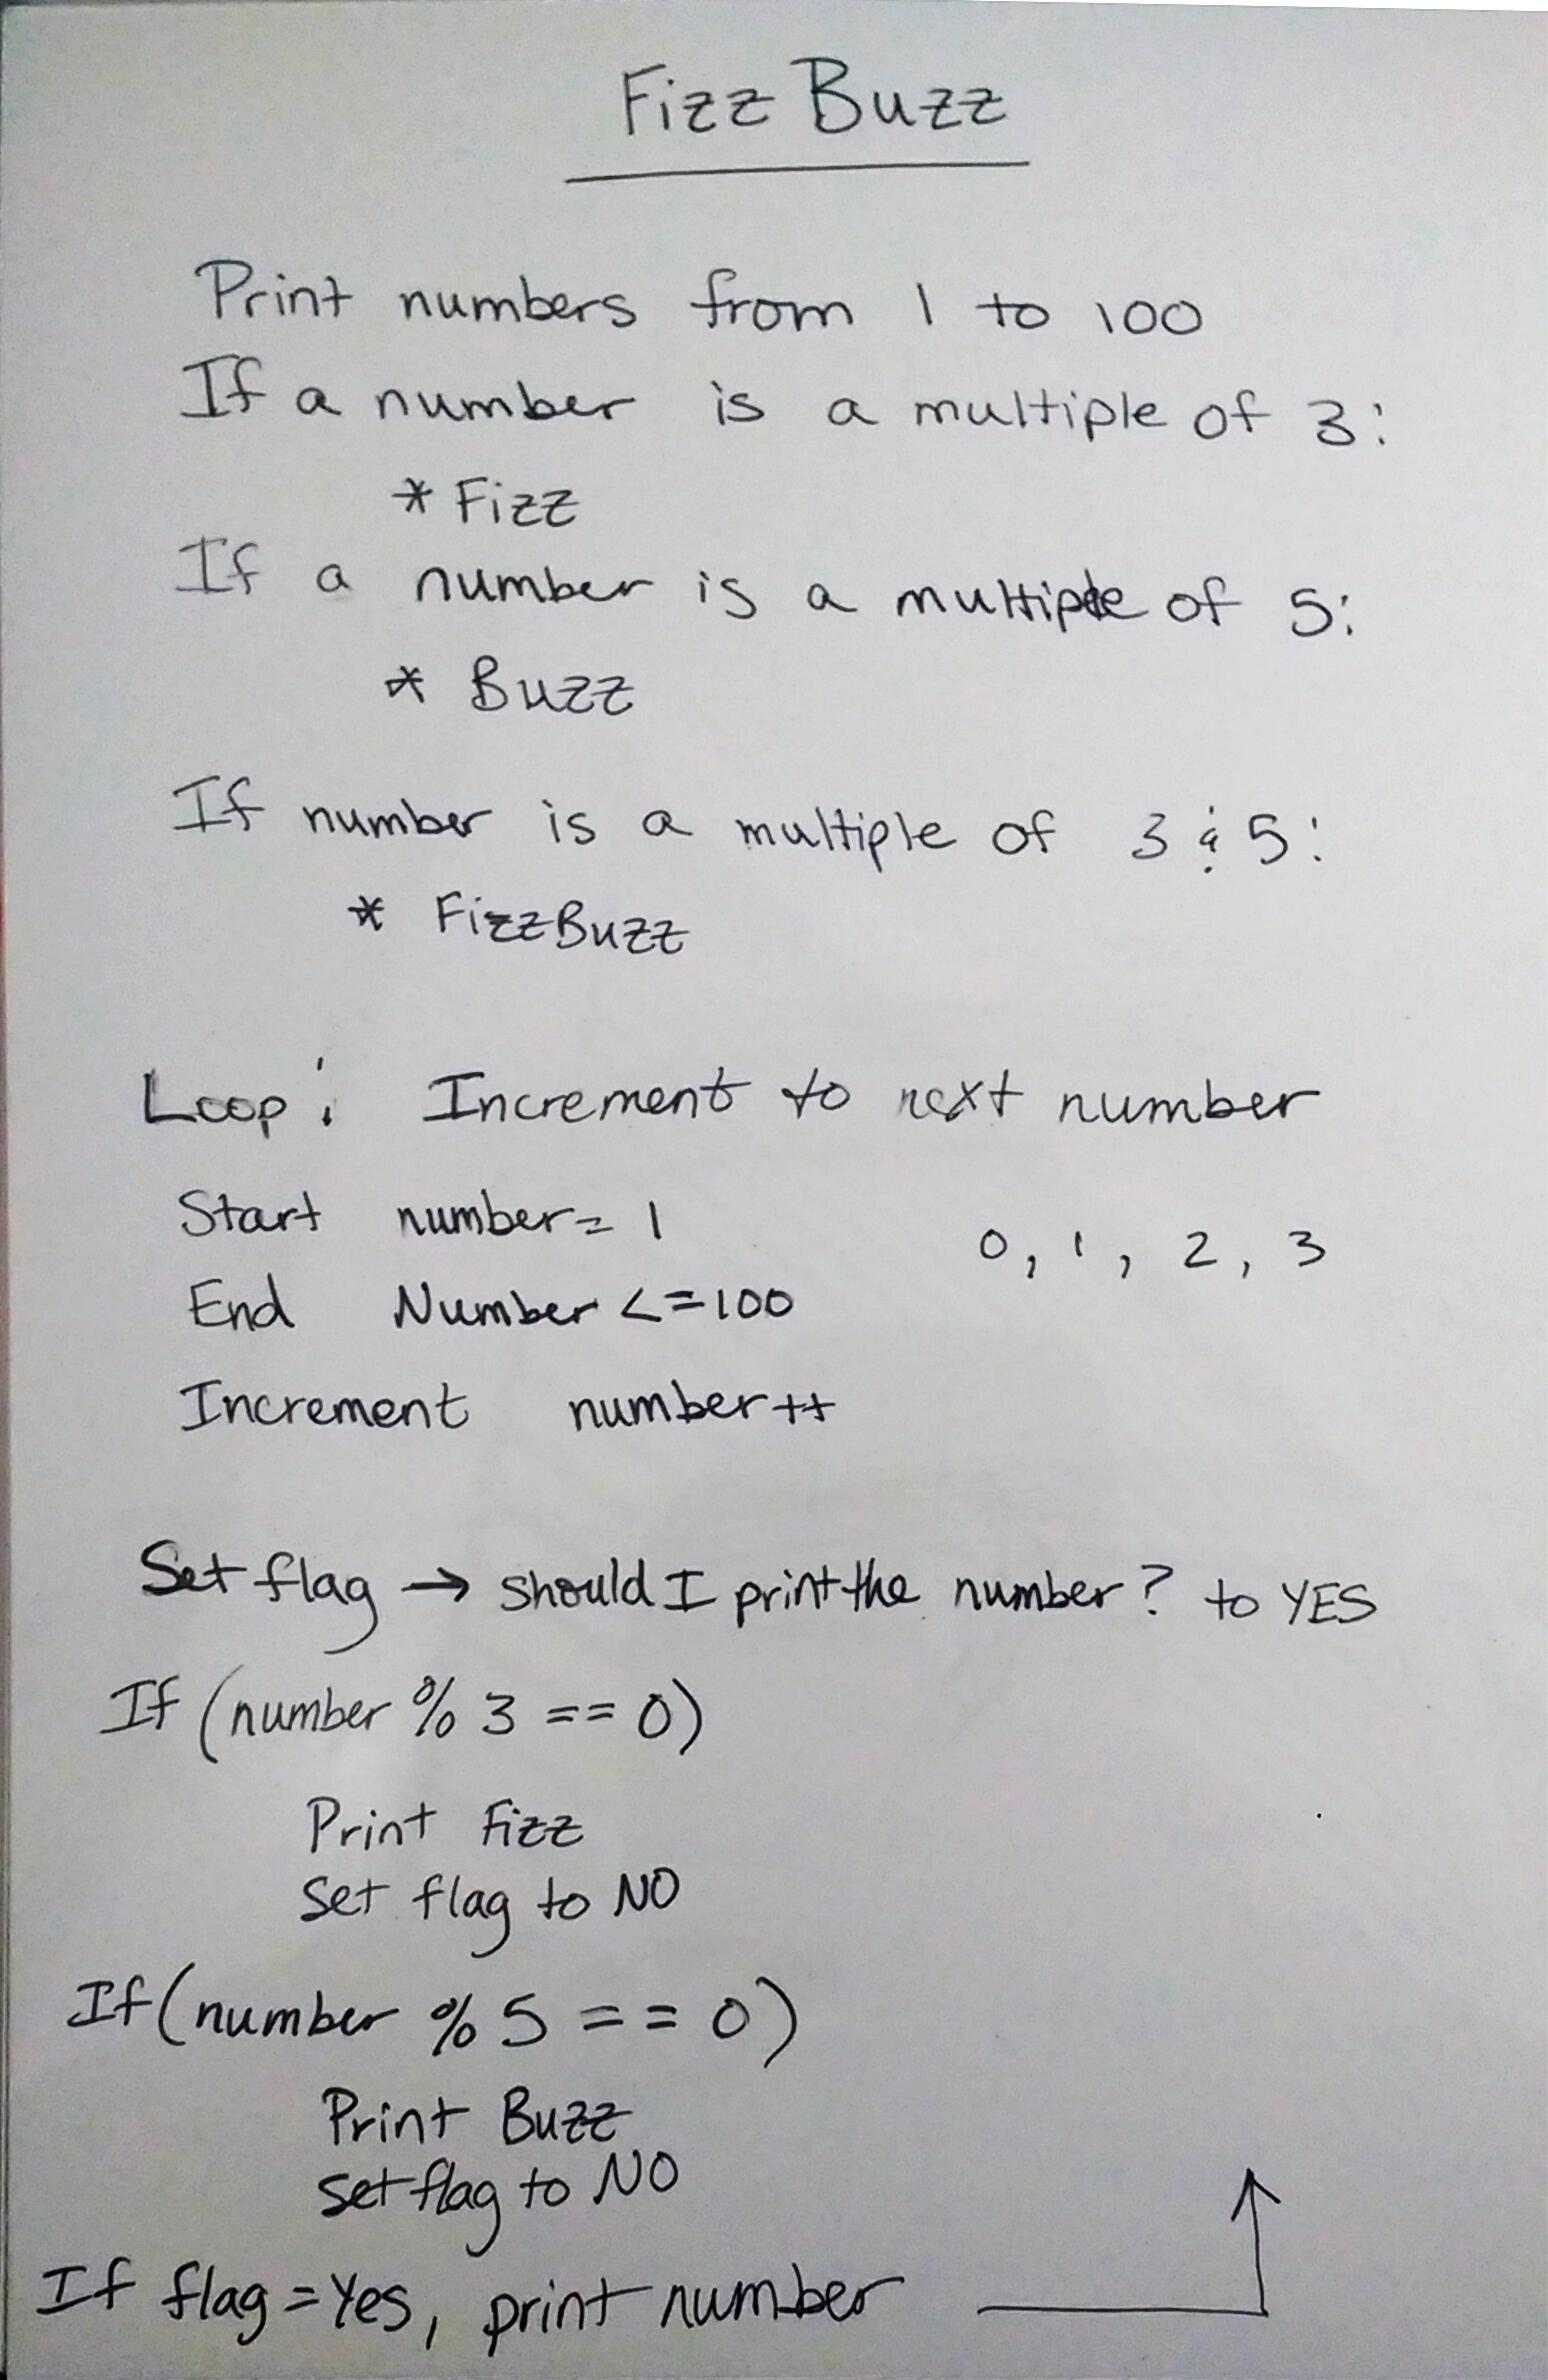 Fizz Buzz
Print numbers from 1 to 100
If a number is a multiple of 3:
* Fizz
If a number is a multiple of 5:
* Buzz
If number is a multiple of 3 & 5:
* FizzBuzz
Loop: Increment to next number
Start number = 1
0, 1, 2, 3
End Number <= 100
Increment number++
Set flag → should I print the number? to YES
If (number % 3 == 0)
Print Fizz
Set flag to NO
If (number % 5 == 0)
Print Buzz
Set flag to NO
If flag = Yes, print number